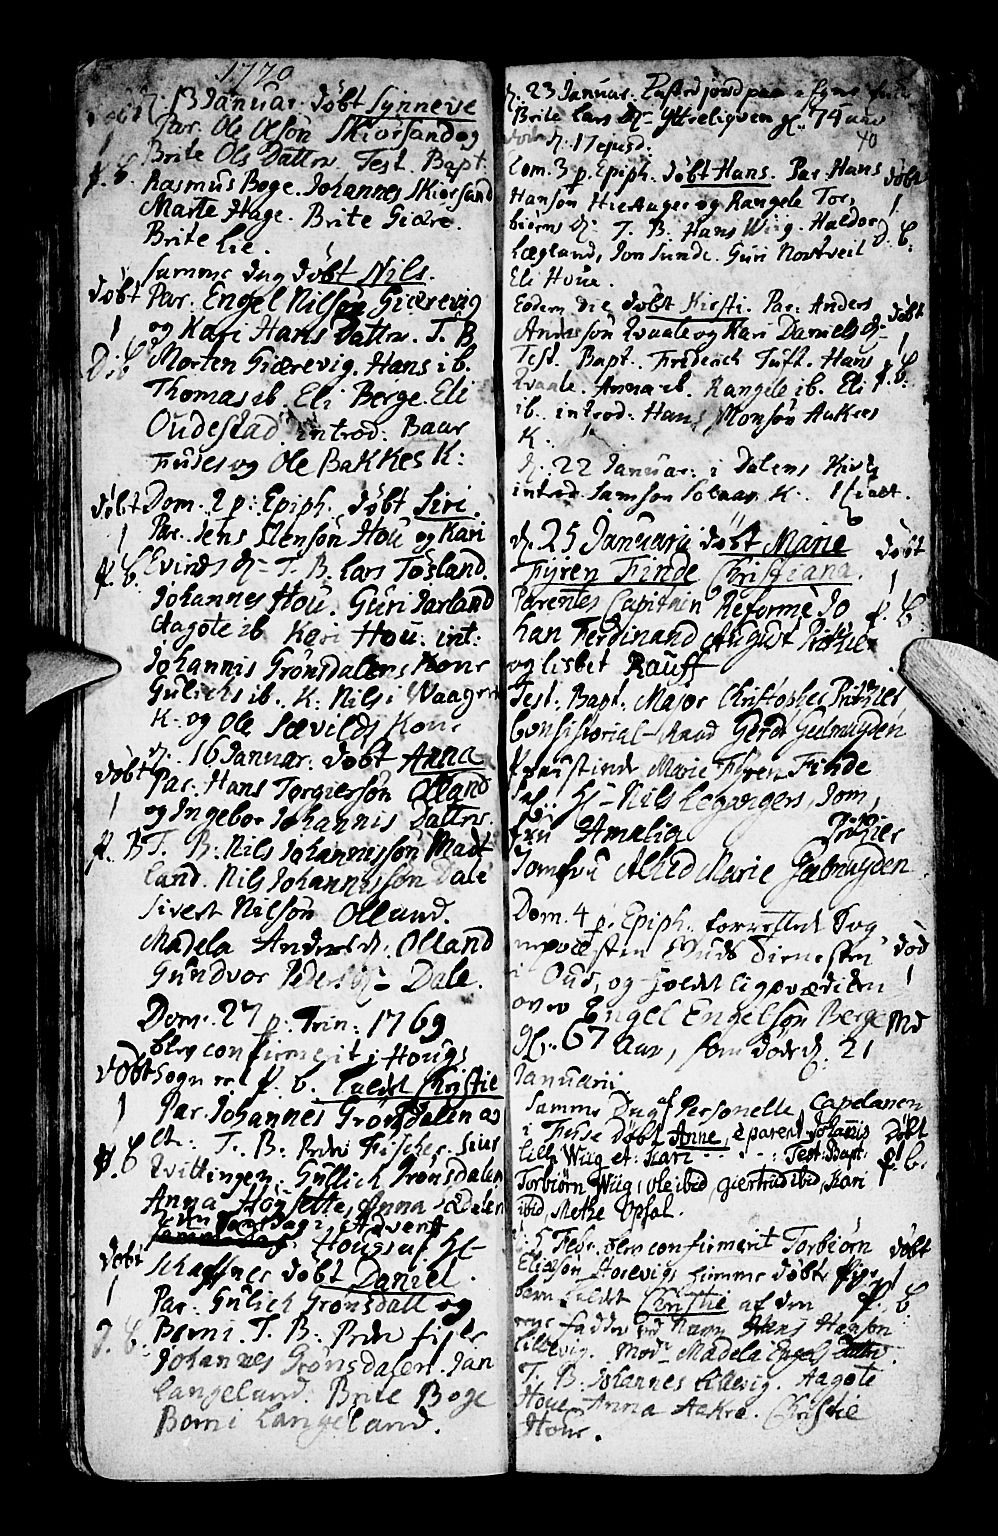 1770
d. 13 Januar. døbt Synneve
Par. Ole Olsøn Skiørsand og
Brite Ols Dattr. Test. Bapt.
Rasmus Boge. Johannes Skiorsand
Marte Hage. Brite Giære.
Brite Lie.
samme dag døbt Nils.
døbt Par. Engel Nilsøn Giærevig
1 og Kari Hans Dattr. T. B.
D. b. Morten Giærevig. Hans ib.
Thomas ib. Eli Berge. Eli
Oudestad. introd: Baar
Fuses og Ole Bakkes K:
døbt Dom. 2 p: Epiph. døbt Siri.
1 Par. Jens Stensøn Hou og Kari
p. b. Evinds d. T. B. Lars Tosland.
Johannes Hou. Guri Jarland
Aagote ib. Kari Hou. int:
Johannis Grønsdalens Kone
Gulichs ib. K. Nils i Waagen
K. og Ole Sævilds Kone
d. 16 Januar. døbt Anna
døbt Par. Hans Torgiersøn Olland
1 og Ingebor Johannis Dattr.
p. B T. B: Nils Johannissøn Madt
land. Nils Johannissøn Dale
Sivert Nilsøn Olland.
Madela Anders d. Olland
Gundvor Peders d. Dale.
Dom. 27 p. Trin: 1769
blev confirmerit i Hougs
døbt Sogn et p. b. kaldet Christie
1 Par. Johannes Grønsdalen og
p. b T. B: Peder Fischer. Siur
Qvittingen. Gullich Grønsdalen
Anna Housette, Anna Ædalen
Advent
døbt Hougs af Hr.
1 Schaffner døbt Daniel.
Par. Gulich Grønsdall og
D. b. Børni. T. B: Peder fisker
Johannes Grønsdalen. Jan
Langeland. Brite Boge
Børni Langeland.
d. 23 Januar. Kasted jord paa
Brite Lars d. Yttreligven gl. 74 aar
40
døde d. 17 ejusd.
Dom. 3 p. Epiph. døbt Hans. Par. Hans døbt
Hansøn Hierager og Rangele Tor, 1
biørns d. T. B. Hans Wiig. Haldor D. b.
Lægland, Jon Sunde. Guri Nortveit
Eli Houe.
Eodem die døbt Kirsti. Par. Anders døbt
Andersøn Qvaale og Kari Daniels d. 1
Test. Bapt. Friderich Tuft. Hans p. b.
Qvaale. Anna ib. Rangele ib. Eli
ib. introd: Hans Monsøn Aakres
K.
d. 22 Januar: i Dalens Kirke
introd. Samson Solaas K. 1
d. 25 Januarii døbt Marie døbt
Fyren Finde Christiana. 1
Parentes Capitain Reformè Jo p. b.
han Ferdinand August Pritzier
og Lisbet Rauff
Test: Bapt. Major Christopher Pritzier,
Consistorial-Raad Gerdt Geelmuyden
Provstinde Marie Fyren Finde
Sal: Hr. Nils Legangers, Jom,
fru Amalia Pritzier
Jomfru Alhed Marie Geelmuyden.
Dom. 4 p. Epiph. forrettet Sog
nepræsten Guds Tienesten død
i Oud, og holdt ligprædiken 1
over Engel Engelsøn Berge Md
gl. 67 aar, som døde d. 21
Januarii
Samme Dag Personelle Capelanen
i Fusse døbt Anne, e parent. Johanis Døbt
Lille Wiig et: Kari : Test: Bapt. p. b.
Torbiørn Wiig, ole ibid, giertrud ibid, Kari
ibid, Methe Opsal.
d: 5 Febr. blev confirmerit Torbiørn døbt
Eliasøn Storevigs hiemme døbte Pige 1
barn kaldet Christie af den p. b.
fadder ved Navn Hans Hansøn
Lillevig. Modr. Madela Engels Dattr.
T. B: Johannes Lillevig. Aagote
Houe. Anna Aakre. Christie
Houe.